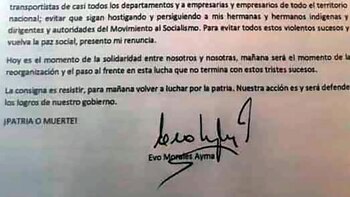 transportistas de casi todos los departamentos y a empresarias y empresarios de todo el territorio
nacional; evitar que sigan hostigando y persiguiendo a mis hermanas y hermanos indígenas y
dirigentes y autoridades del Movimiento al Socialismo. Para evitar todos estos violentos sucesos y
vuelva la paz social, presento mi renuncia.
Hoy es el momento de la solidaridad entre nosotros y nosotras, mañana será el momento de la
reorganización y el paso al frente en esta lucha que no termina con estos tristes sucesos.
La consigna es resistir, para mañana volver a luchar por la patria. Nuestra acción es y será defender
los logros de nuestro gobierno.
¡PATRIA O MUERTE!
Evo Morales Ayma